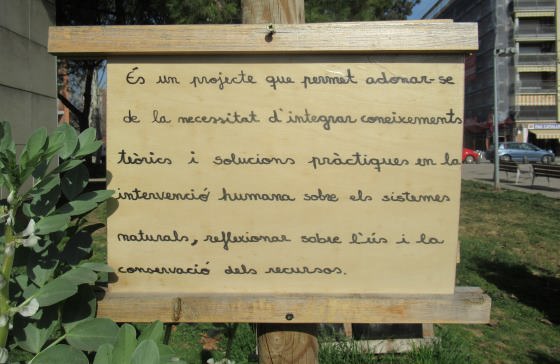 És un projecte que permet adonar-se
de la necessitat d'integrar coneixements
teòrics i solucions pràctiques en la
intervenció humana sobre els sistemes
naturals, reflexionar sobre l'ús i la
conservació dels recursos.